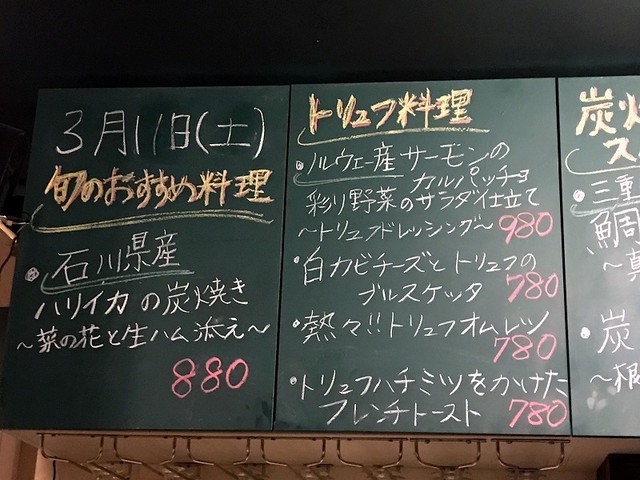 3月11日(土)
旬のおすすめ料理
石川県産
ハリイカの炭焼き
～菜の花と生ハム添え～
880
トリュフ料理
ノルウェー産サーモンの
カルパッチョ
彩り野菜のサラダ仕立て
～トリュフドレッシング～ 980
白カビチーズとトリュフの
ブルスケッタ 780
熱々!!トリュフオムレツ
780
トリュフハチミツをかけた
フレンチトースト 780
炭火
ス
三重
鯛
～菓
炭
～根